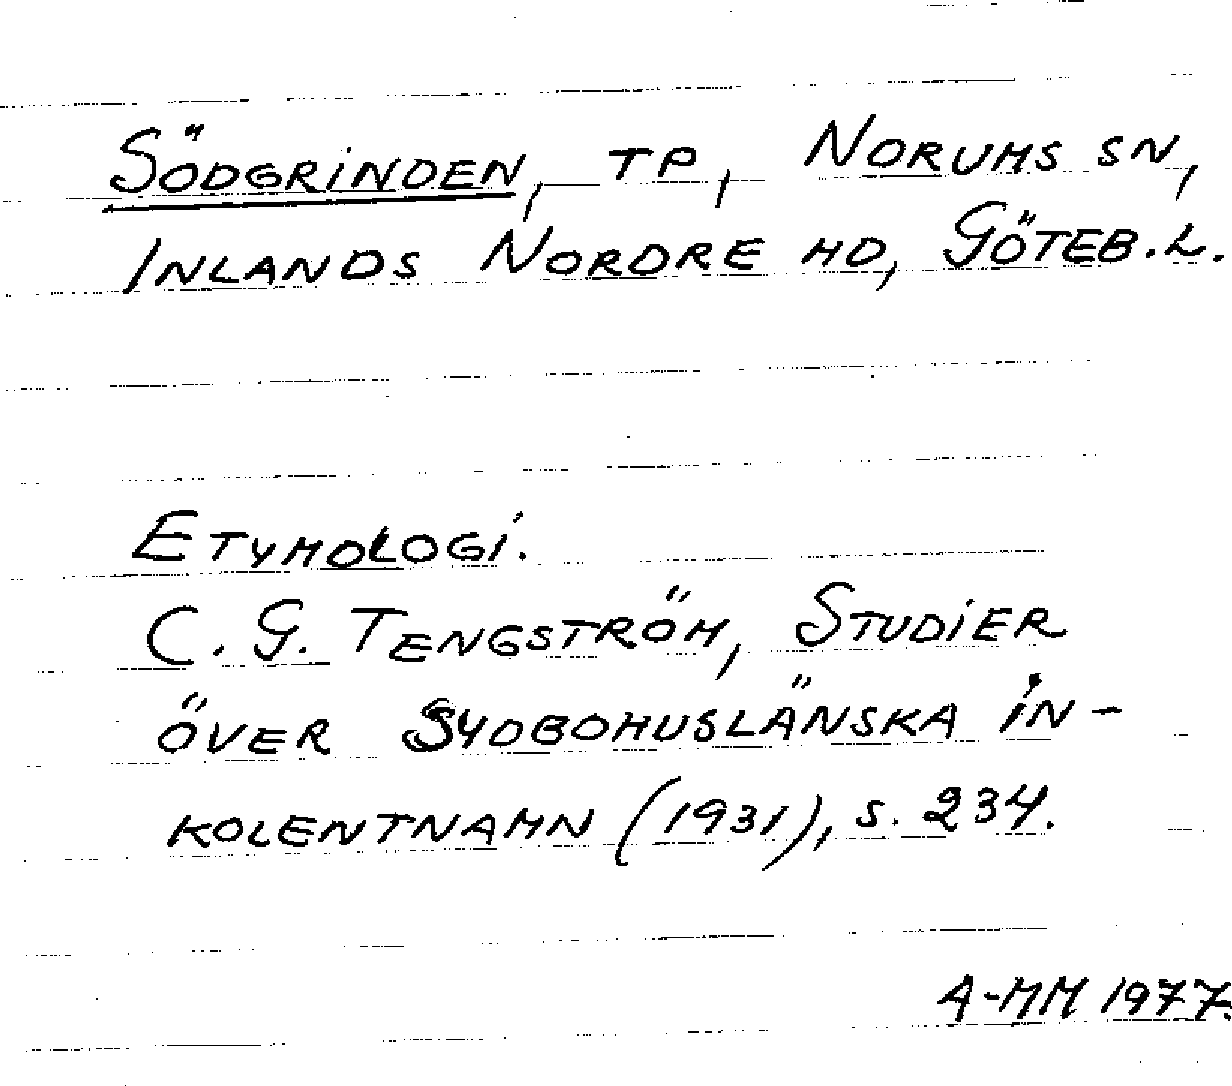 SÖDGRINDEN, TP, NORUMS SN,
INLANDS NORDRE HD, GÖTEB.L.
ETYMOLOGI.
C. G. TENGSTRÖM, STUDIER
ÖVER SYDBOHUSLÄNSKA IN-
KOLENTNAMN (1931), S. 234.
A-MM 1977.